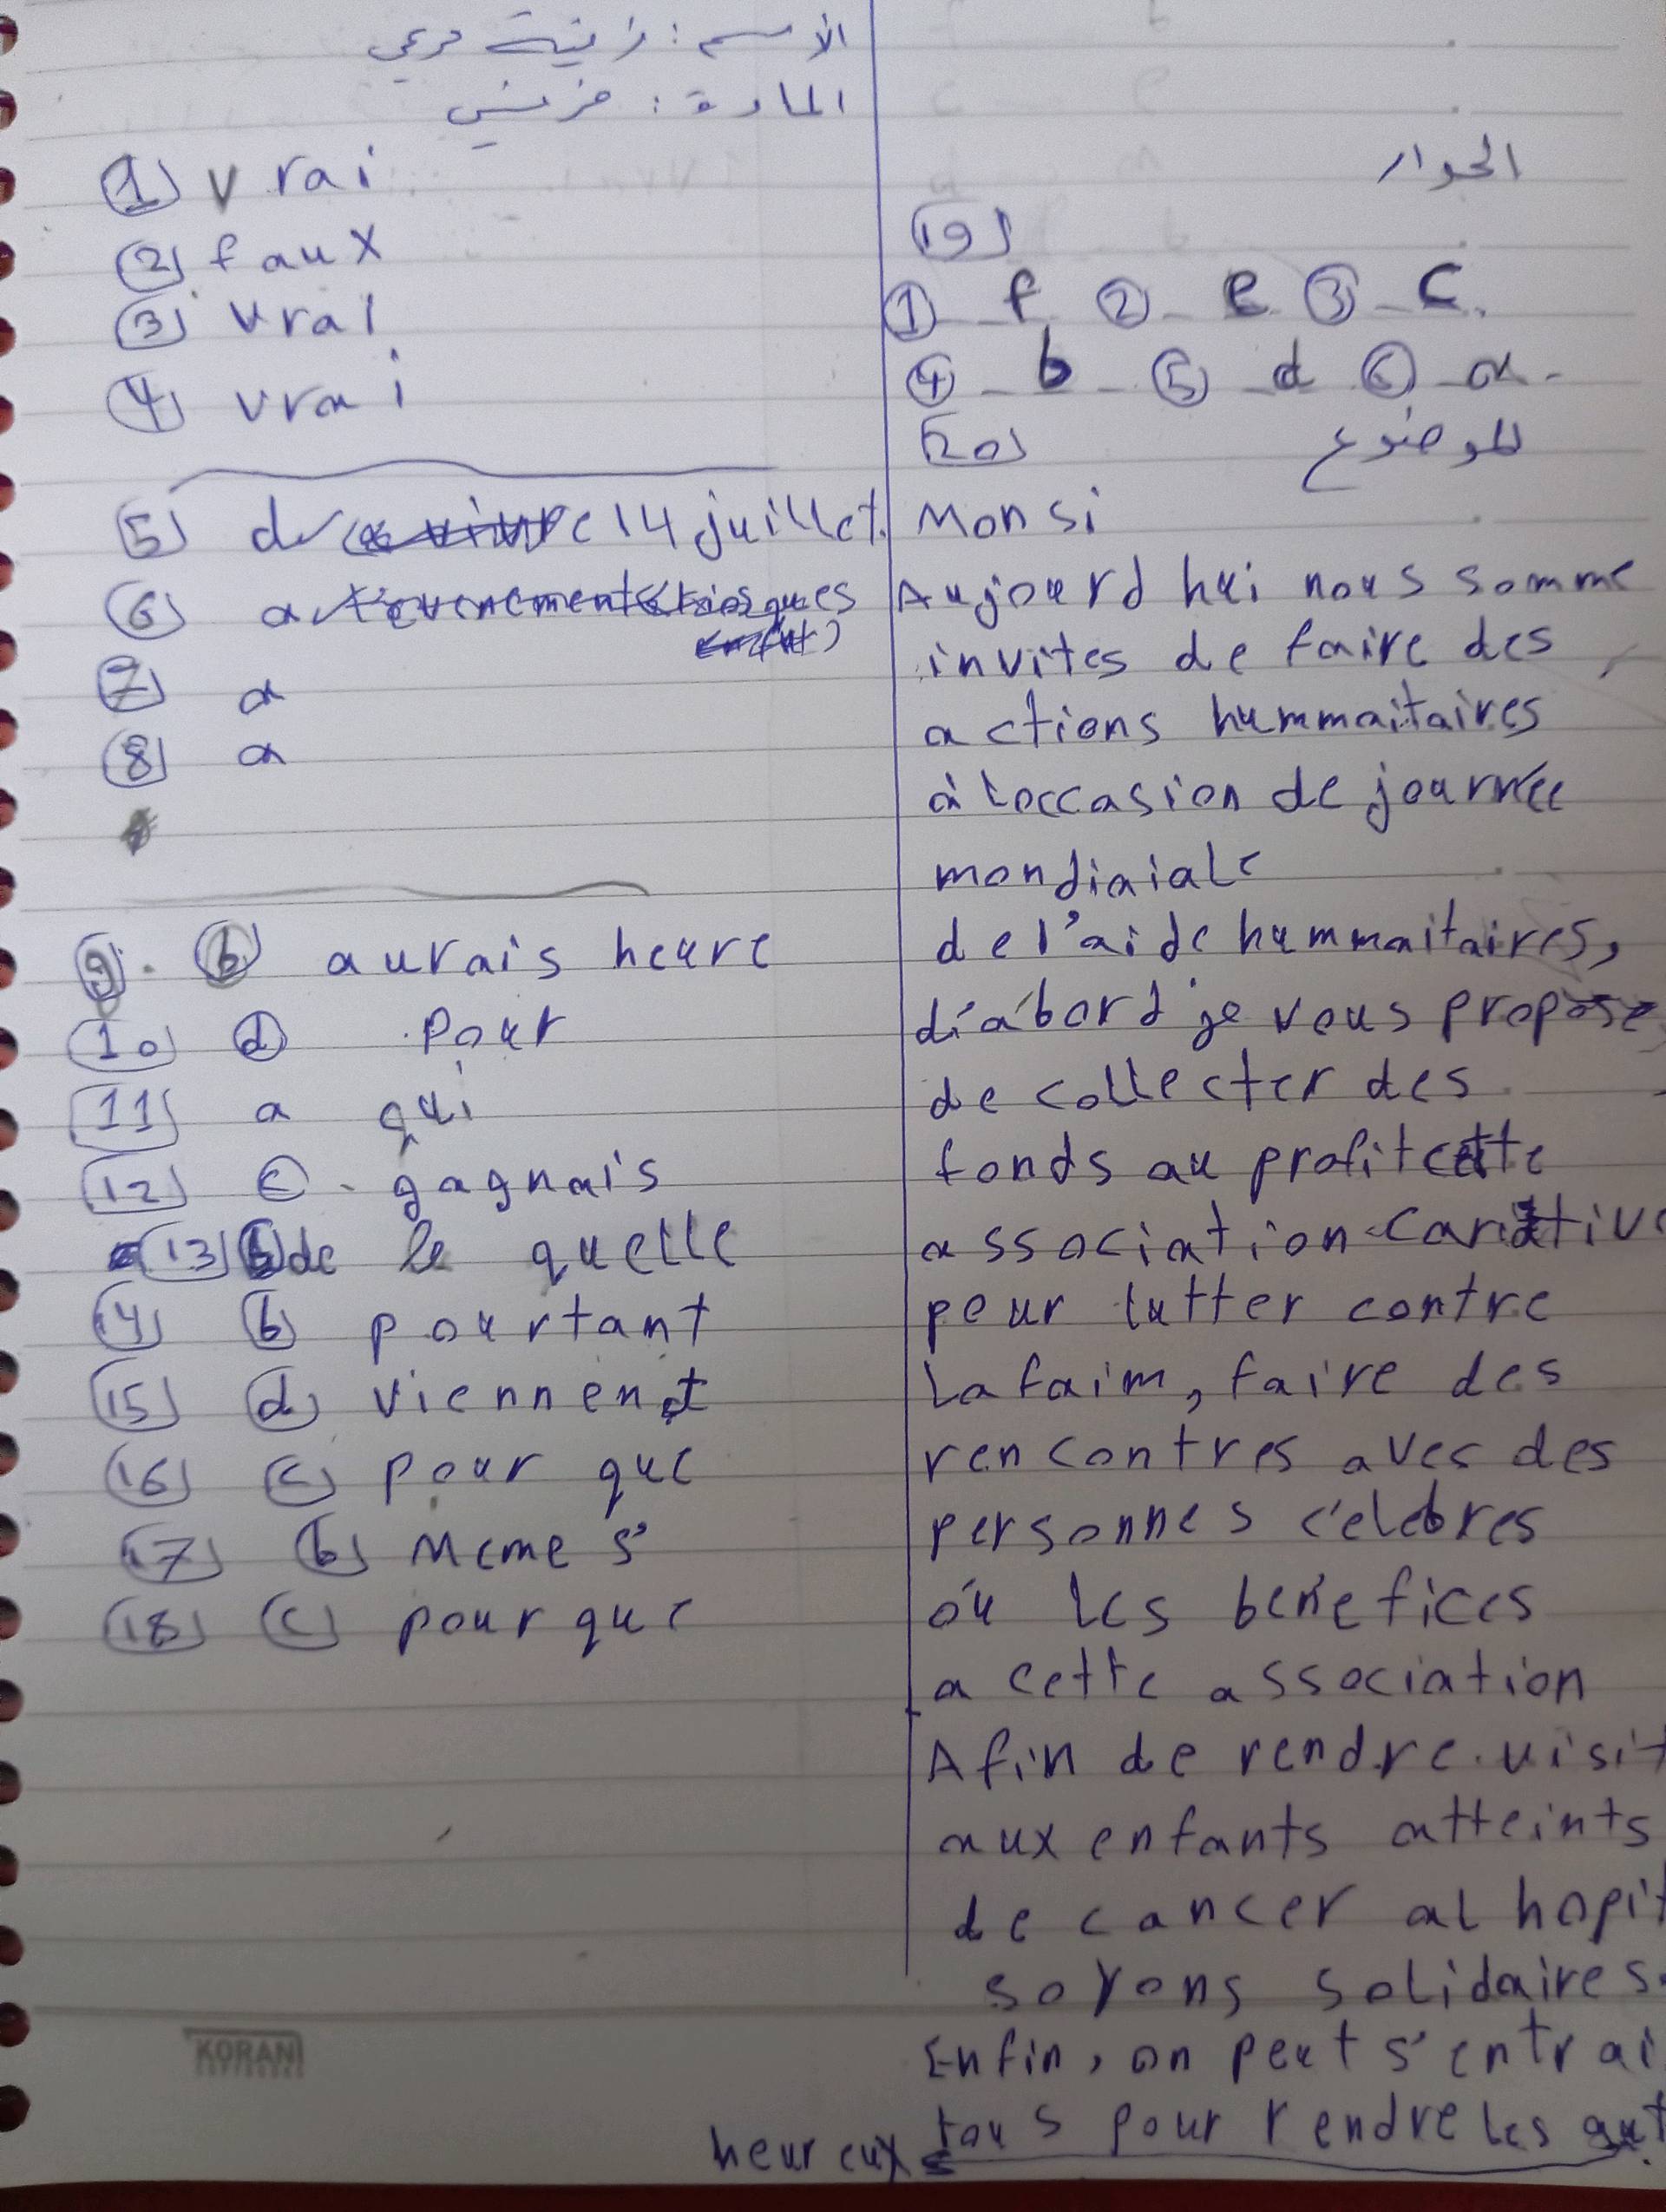 الاسم : زينة مرعي
المادة : فرنسي
1 vrai
2 faux
3 vrai
4 vrai
5 d 14 juillet.
6 a
7 a
8 a
9. b aurais heure
10 d pour
11 a qui
12 c - gagnais
13 b de le quelle
14 b pourtant
15 d viennent
16 c pour que
17 b Meme s'
18 c pour que
الحوار
19
1 _ f 2 _ e 3 _ c.
4 _ b _ 5 _ d 6 _ a -
20 الموضوع
Monsi
Aujourd hui nous somme
invites de faire des
actions hummaitaires
à l'occasion de journée
mondiaiale
de l'aide hummaitaires,
d'abord je vous propose
de collecter des
fonds au profit cette
association caritativ
pour lutter contre
La faim, faire des
rencontres aves des
personnes célebres
où les bénefices
a cette association
Afin de rendre visit
aux enfants atteints
de cancer al hopit
soyons solidaires.
Enfin, on peut s'entrai
tous pour rendre les aut
heureux
KORANI